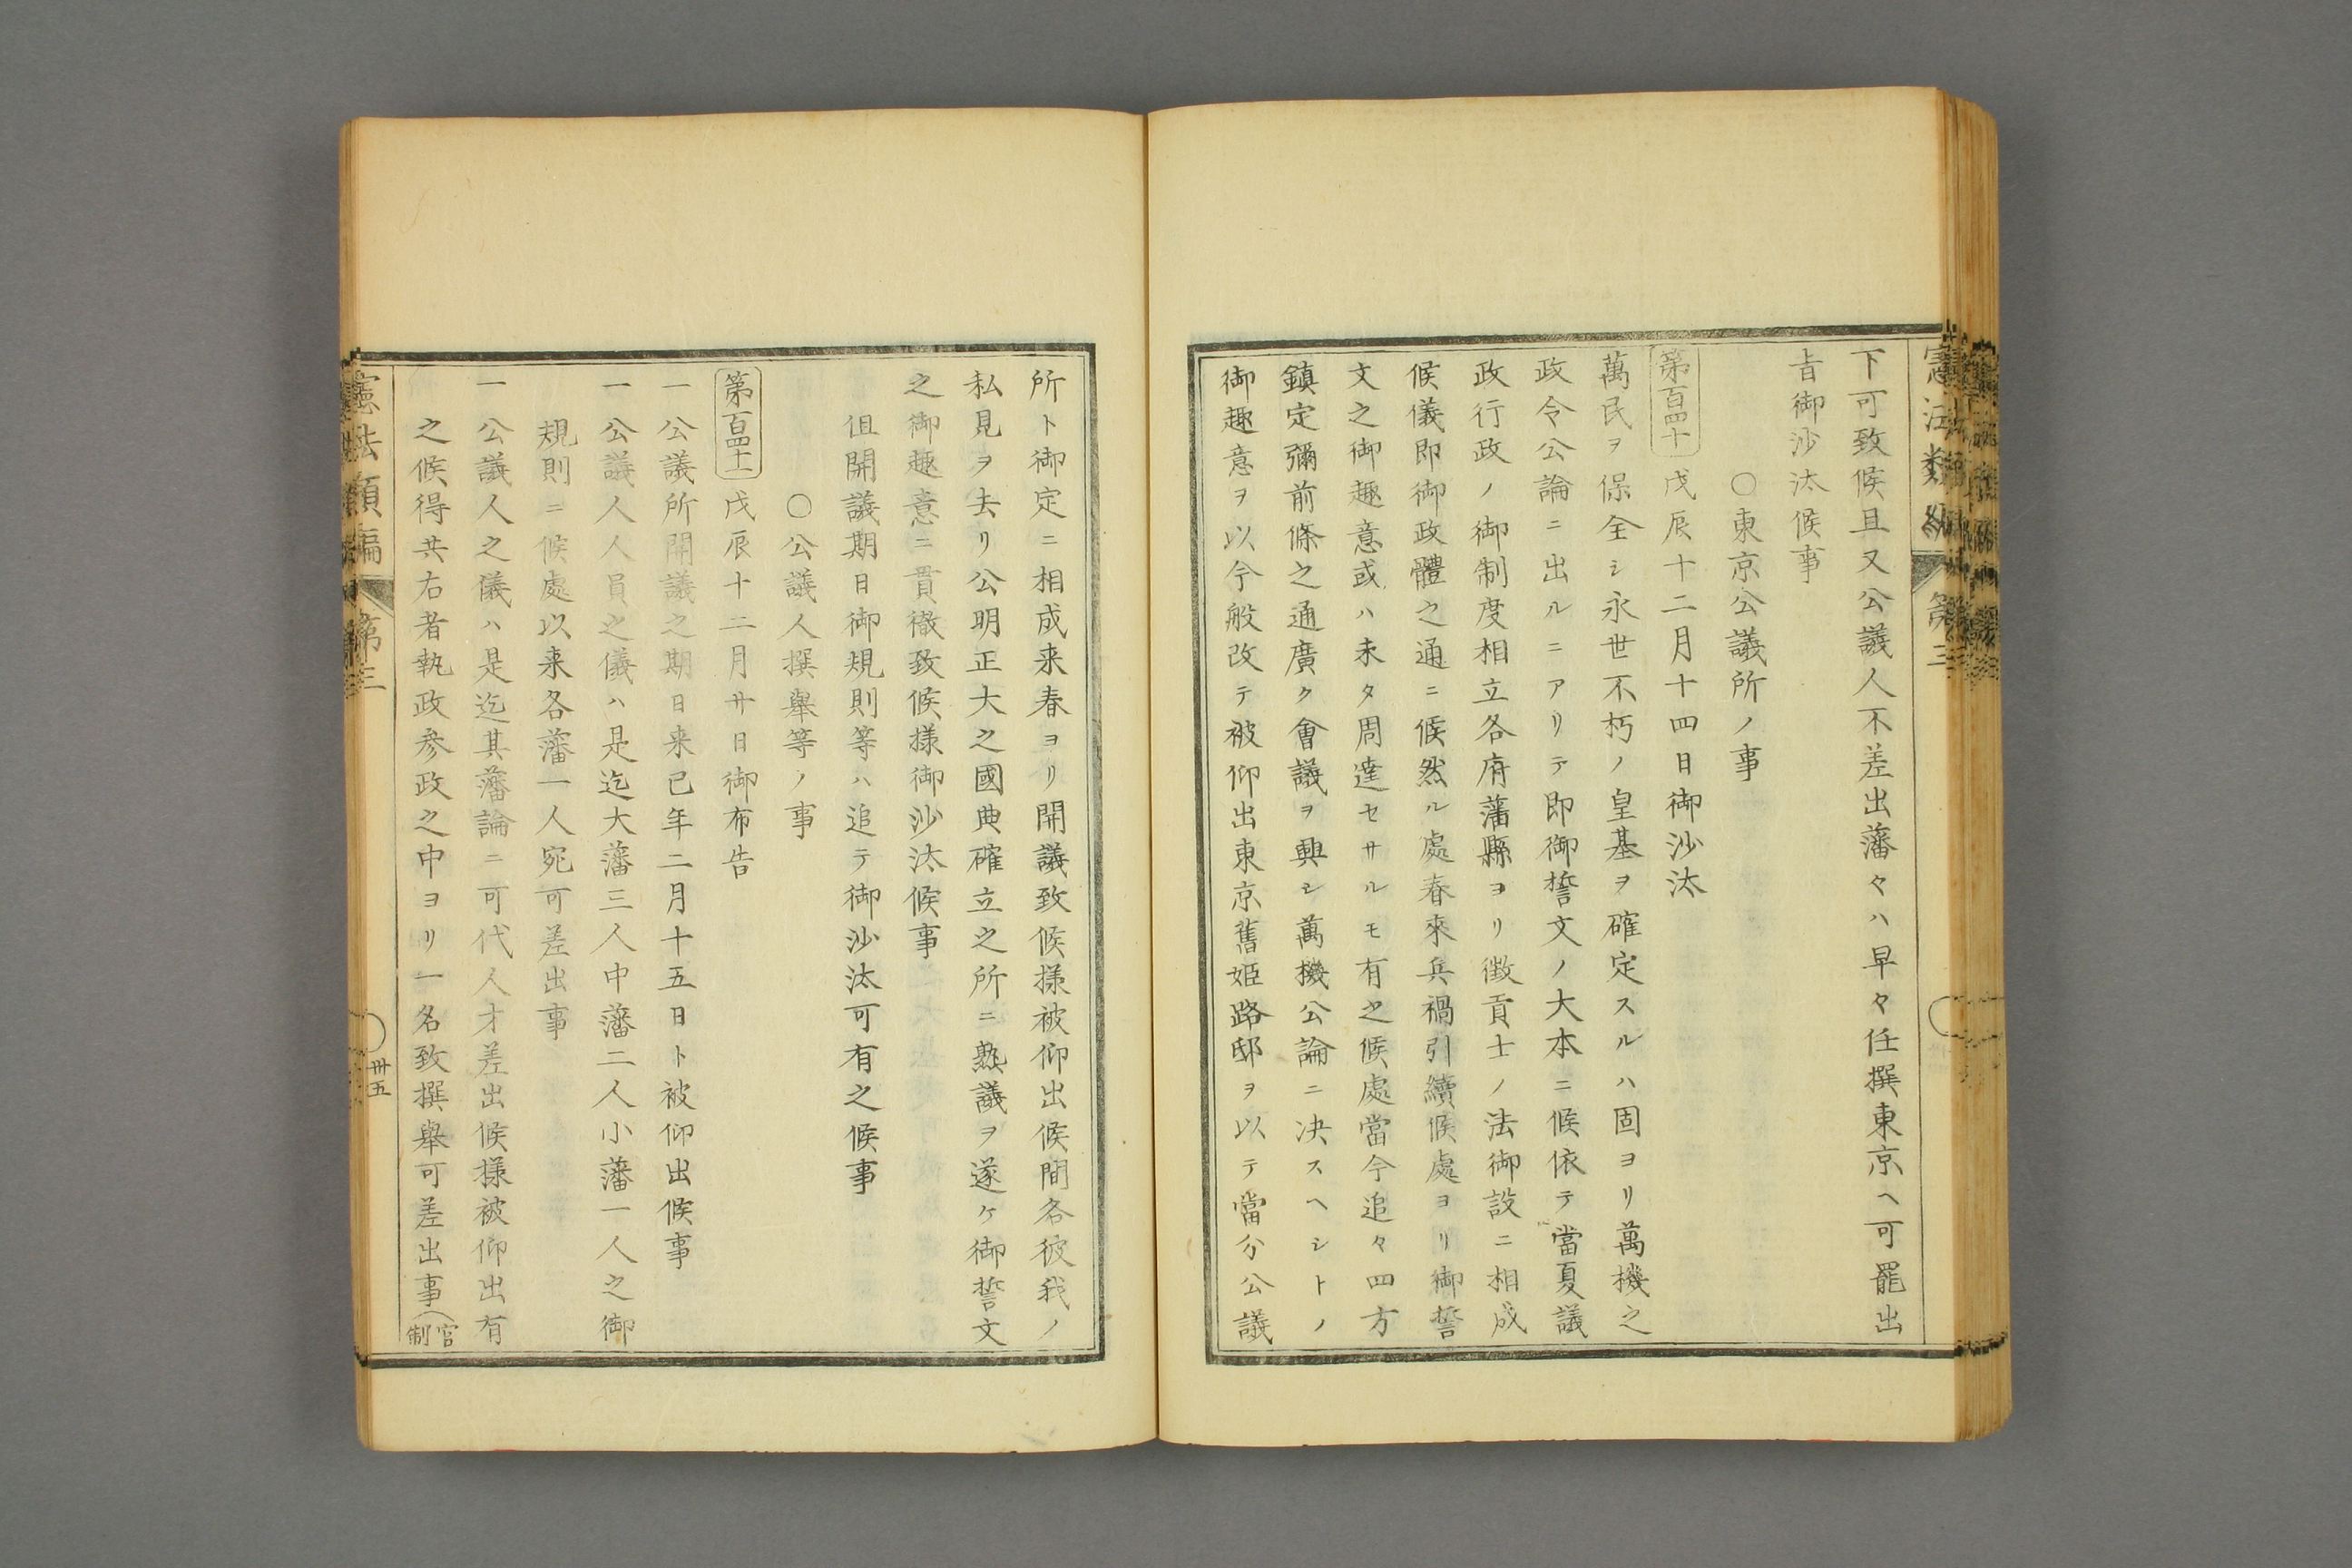 憲法類編 第三
下可致候且又公議人不差出藩々ハ早々任撰東京ヘ可罷出
旨御沙汰候事
〇東京公議所ノ事
第百四十 戊辰十二月十四日御沙汰
萬民ヲ保全シ永世不朽ノ皇基ヲ確定スルハ固ヨリ萬機之
政令公論ニ出ルニアリテ即御誓文ノ大本ニ候依テ當夏議
政行政ノ御制度相立各府藩縣ヨリ徴貢士ノ法御設ニ相成
候儀即御政體之通ニ候然ル處春來兵禍引續候處ヨリ御誓
文之御趣意或ハ未タ周達セサルモ有之候處當今追々四方
鎮定彌前條之通廣ク會議ヲ興シ萬機公論ニ决スヘシトノ
御趣意ヲ以今般改テ被仰出東京舊姫路邸ヲ以テ當分公議
所ト御定ニ相成来春ヨリ開議致候様被仰出候間各彼我ノ
私見ヲ去リ公明正大之國典確立之所ニ熟議ヲ遂ケ御誓文
之御趣意ニ貫徹致候様御沙汰候事
但開議期日御規則等ハ追テ御沙汰可有之候事
〇公議人撰擧等ノ事
第百四十一 戊辰十二月廿日御布告
一公議所開議之期日来已年二月十五日ト被仰出候事
一公議人人員之儀ハ是迄大藩三人中藩二人小藩一人之御
規則ニ候處以来各藩一人宛可差出事
一公議人之儀ハ是迄其藩論ニ可代人才差出候様被仰出有
之候得共右者執政参政之中ヨリ一名致撰擧可差出事（官制
憲法類編 第三 卅五